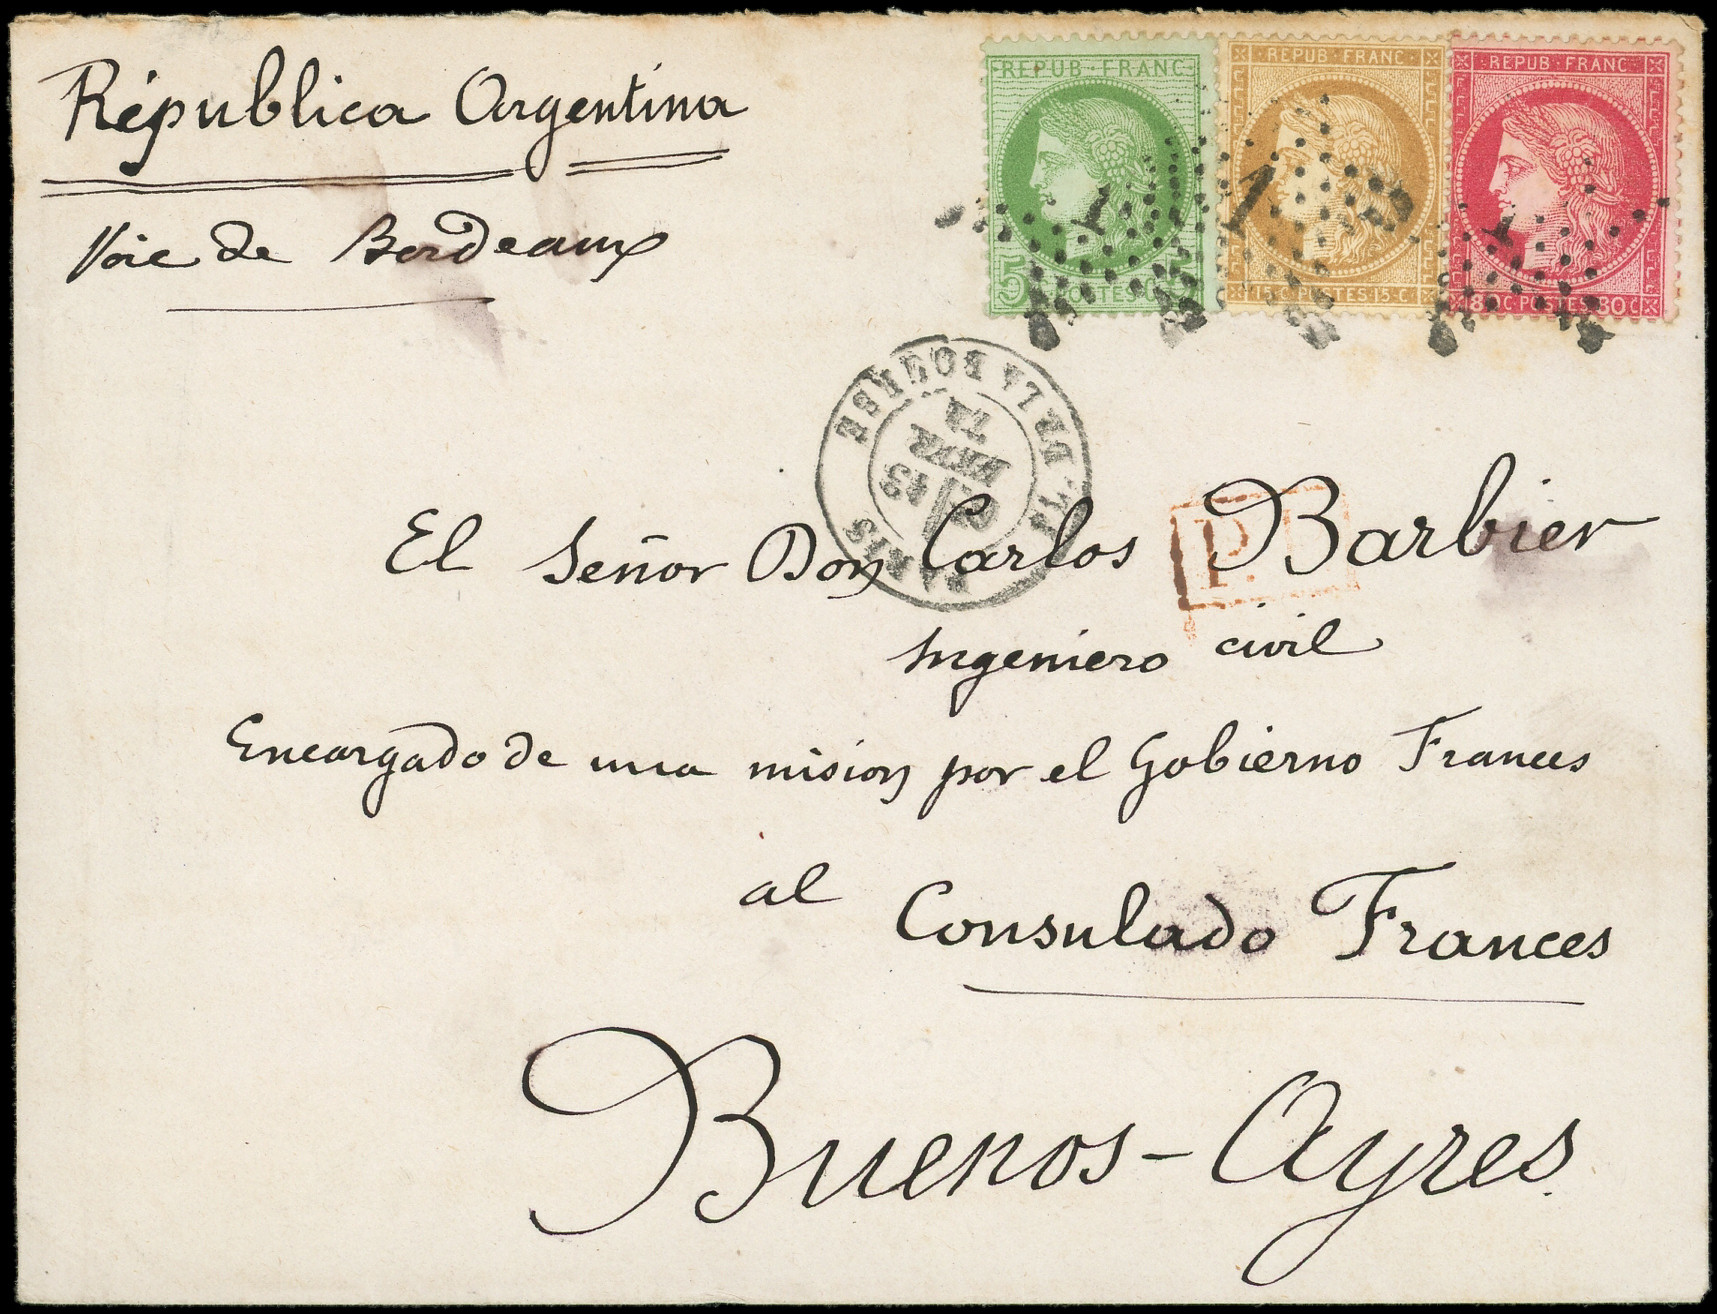 República Argentina
Voie de Bordeaux
REPUB·FRANC
5 POSTES
REPUB·FRANC
15·C·POSTES·15·C
REPUB·FRANC
80C·POSTES·80C
1
1
1
PARIS PL. DE LA BOURSE
13
FEVR
P.
El Señor Don Carlos Barbier
Ingeniero civil
Encargado de una mision por el Gobierno Frances
al Consulado Frances
Buenos-Ayres